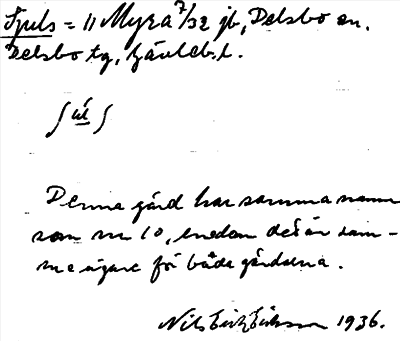 Sjuls = 11 Myra 7/32 jb, Delsbo sn.
Delsbo tg, Gävleb. l.
ʃu̇lʃ
Denna gård har samma namn
som nr 10, medan det är sam-
me ägare för båda gårdarna.
Nils Erik Eriksson 1936.